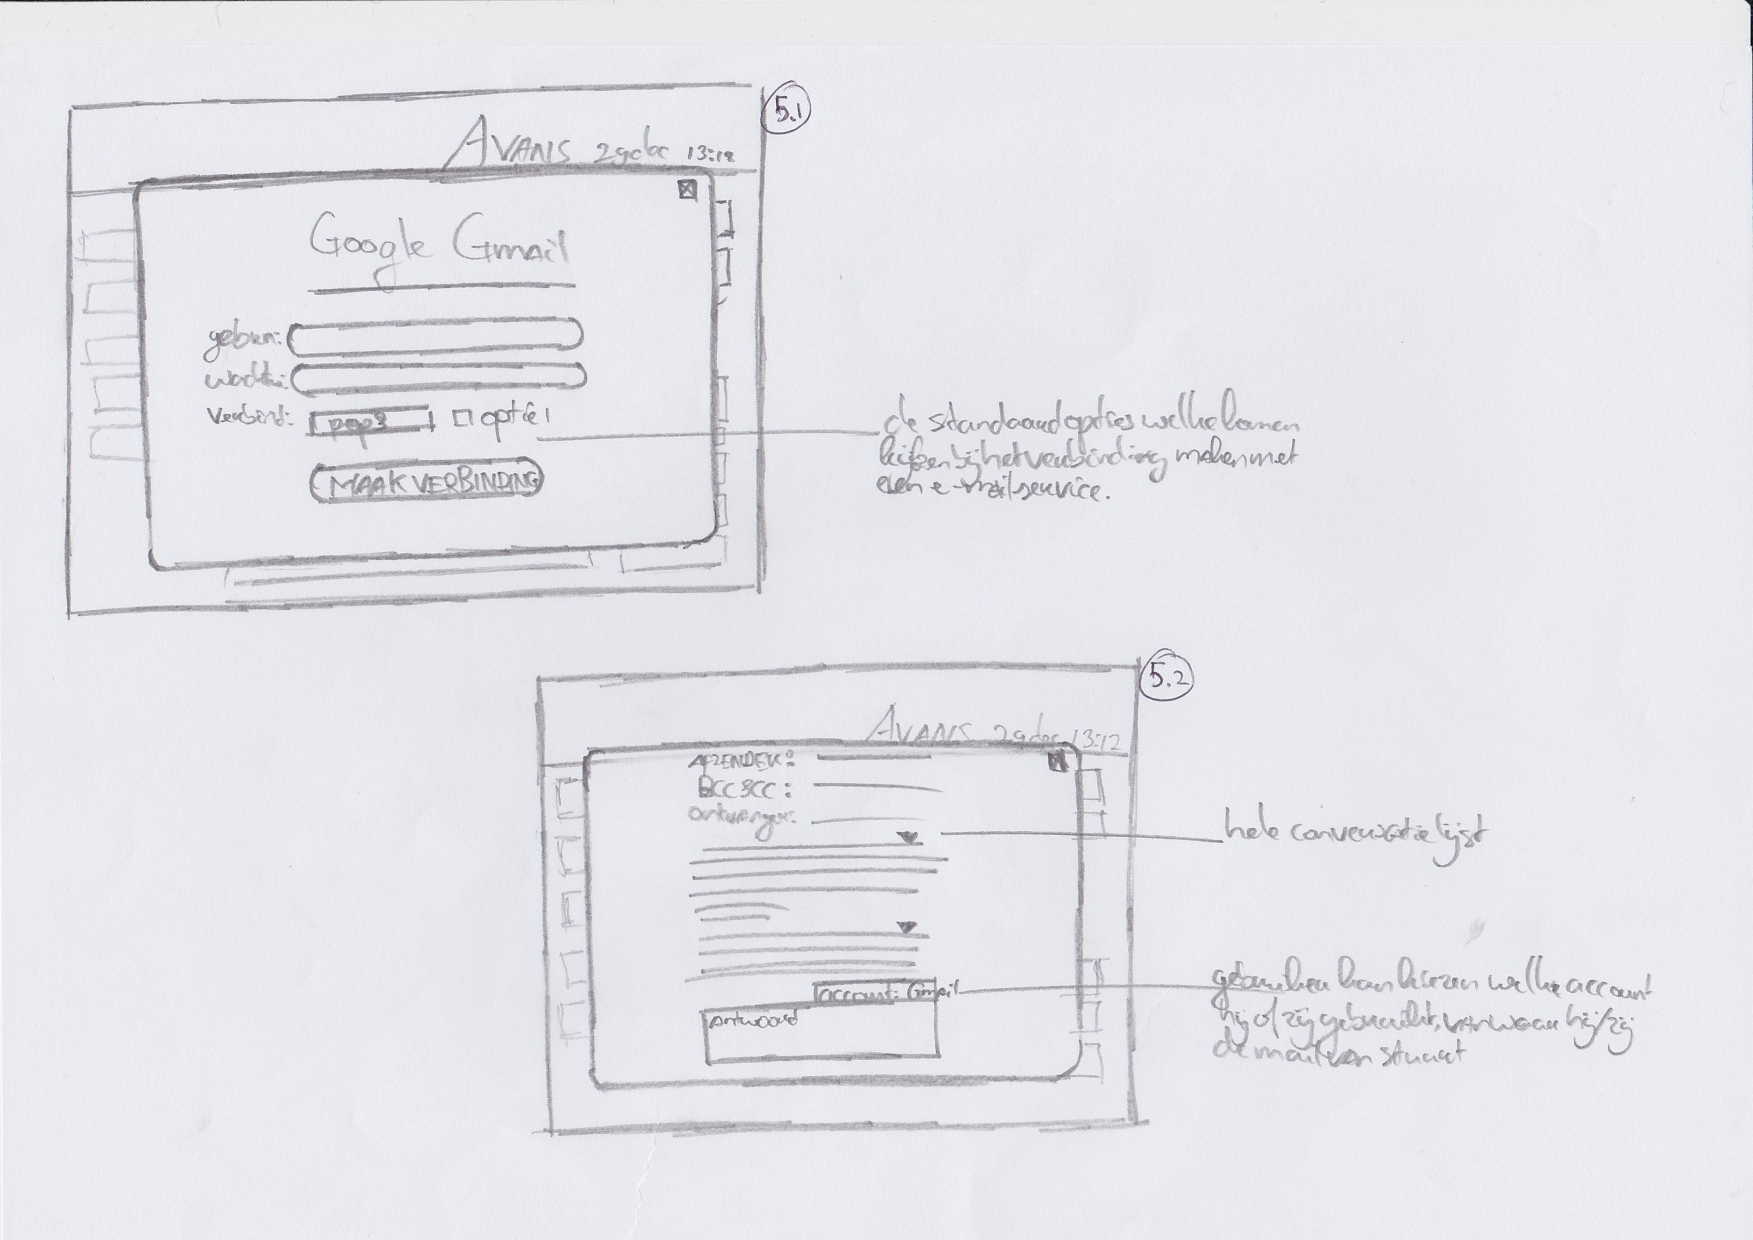 5.1
AVANS 29 dec 13:12
Google Gmail
gebr.:
wachtw.:
Verbind: pop3 optie 1
MAAK VERBINDING
de standaard opties welke komen
kijken bij het verbinding maken met
een e-mail service.
5.2
AVANS 29 dec 13:12
AFZENDER:
BCC &CC:
ontvanger:
hele conversatie lijst
account: Gmail
antwoord
gebruiker kan kiezen welke account
hij of zij gebruikt, van waar hij/zij
de mail stuurt